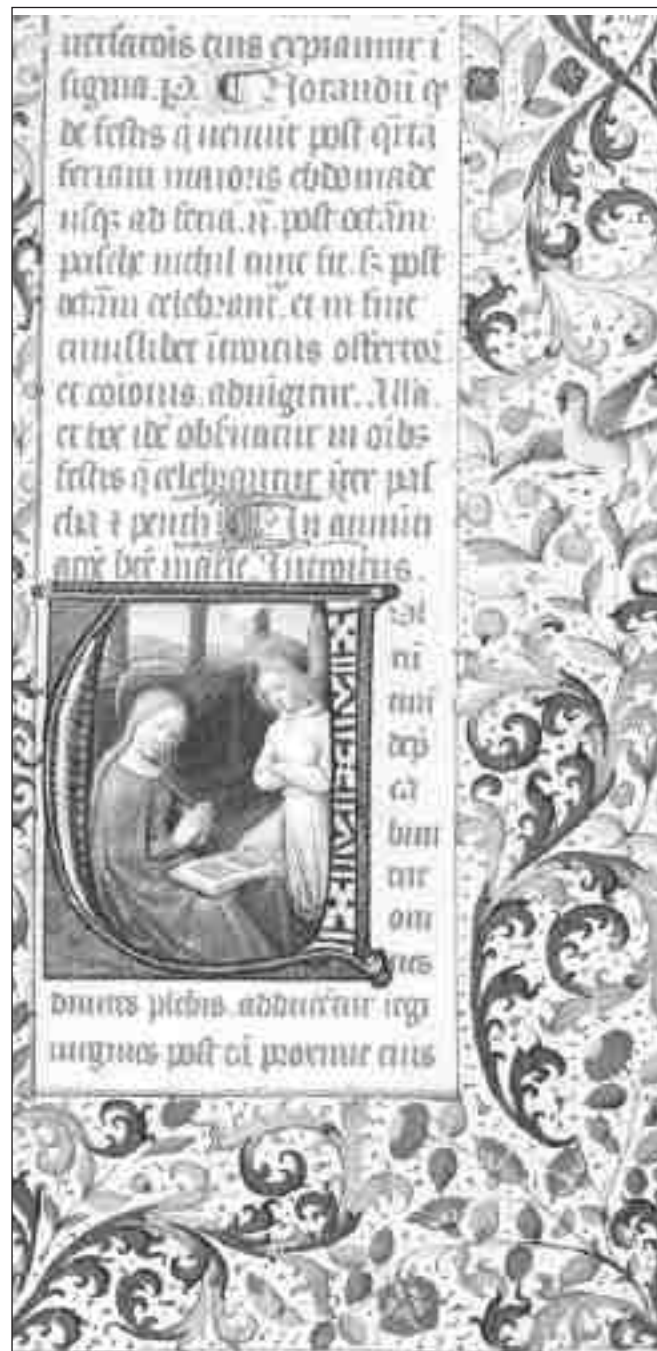 signia. Notandū q
de festis q ueniunt post qrta
feriam maioris ebdomade
usqꝫ ad feria. ii. post octām
pasche nichil tunc fit. sꝫ post
octām celebrant̄. et in fine
cuiuslibet ītroitus offertoꝝ
et cōionis adiungitur. Alla.
et hoc idē obseruatur in oībꝫ
festis q celebrantur īter pas
cha ⁊ penth. In annun
marie Introitus.
dep
ca
bun
tur
om
nes
diuites plebis. adducēt̄ur regi
uirgines post eā proxime eius